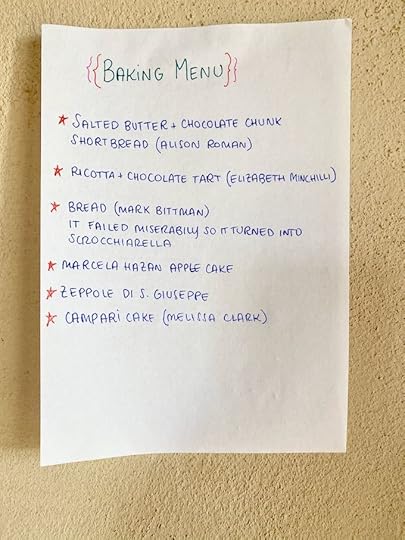 {{Baking Menu}}
★ Salted butter + chocolate chunk
shortbread (Alison Roman)
★ Ricotta + chocolate tart (Elizabeth Minchilli)
★ Bread (Mark Bittman)
it failed miserabily so it turned into
scrocchiarella
★ Marcela Hazan apple cake
★ Zeppole di S. Giuseppe
★ Campari cake (Melissa Clark)